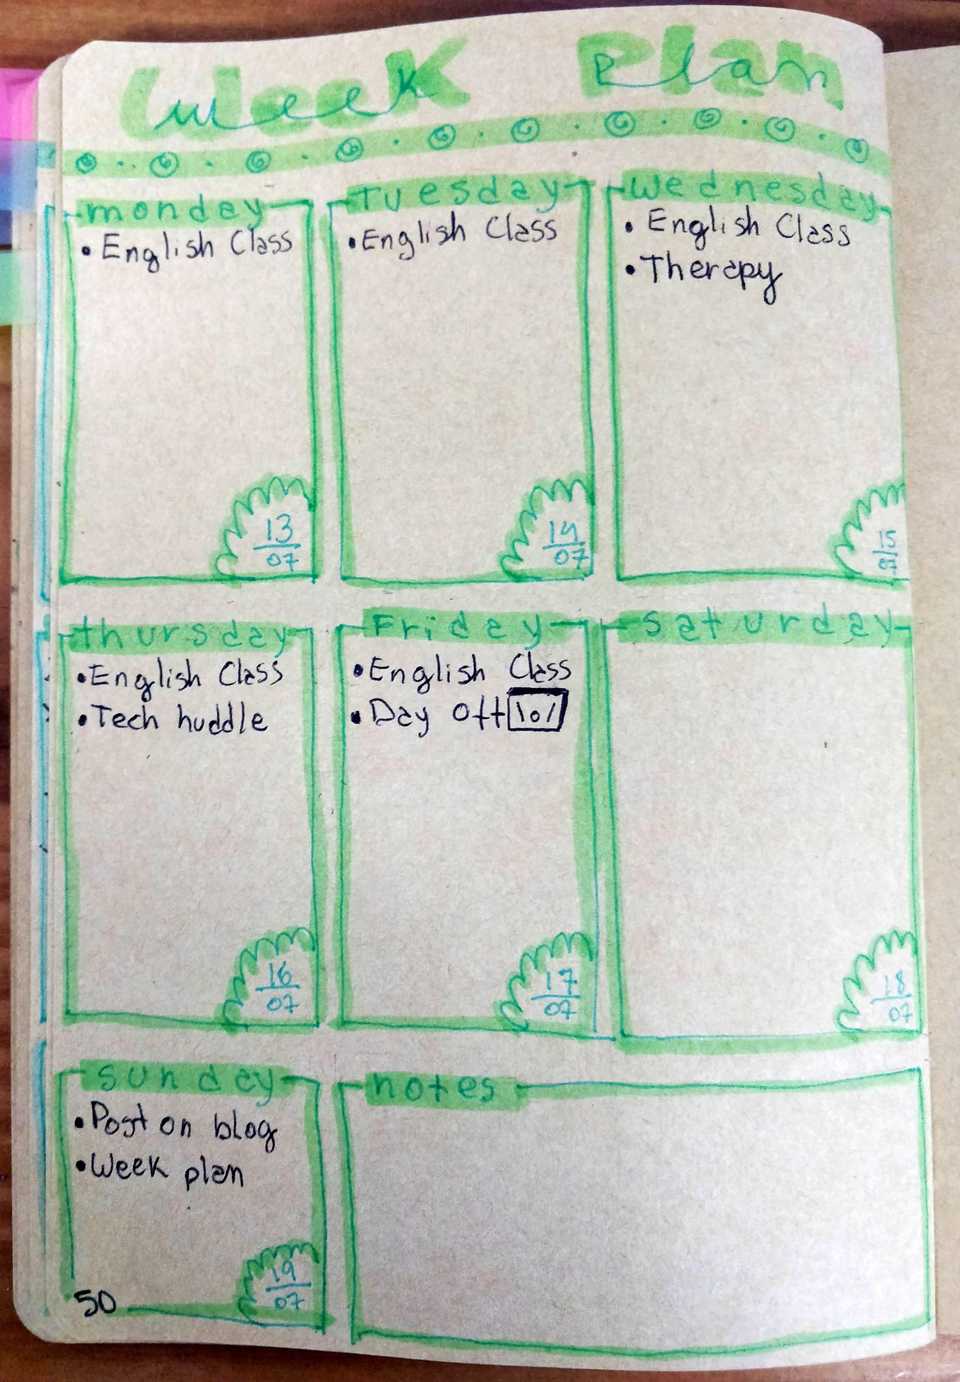 Week Plan
monday
• English Class
13
07
Tuesday
• English Class
14
07
Wednesday
• English Class
• Therapy
15
07
thursday
• English Class
• Tech huddle
16
07
Friday
• English Class
• Day off \o/
17
07
saturday
18
07
sunday
• Post on blog
• Week plan
19
07
notes
50